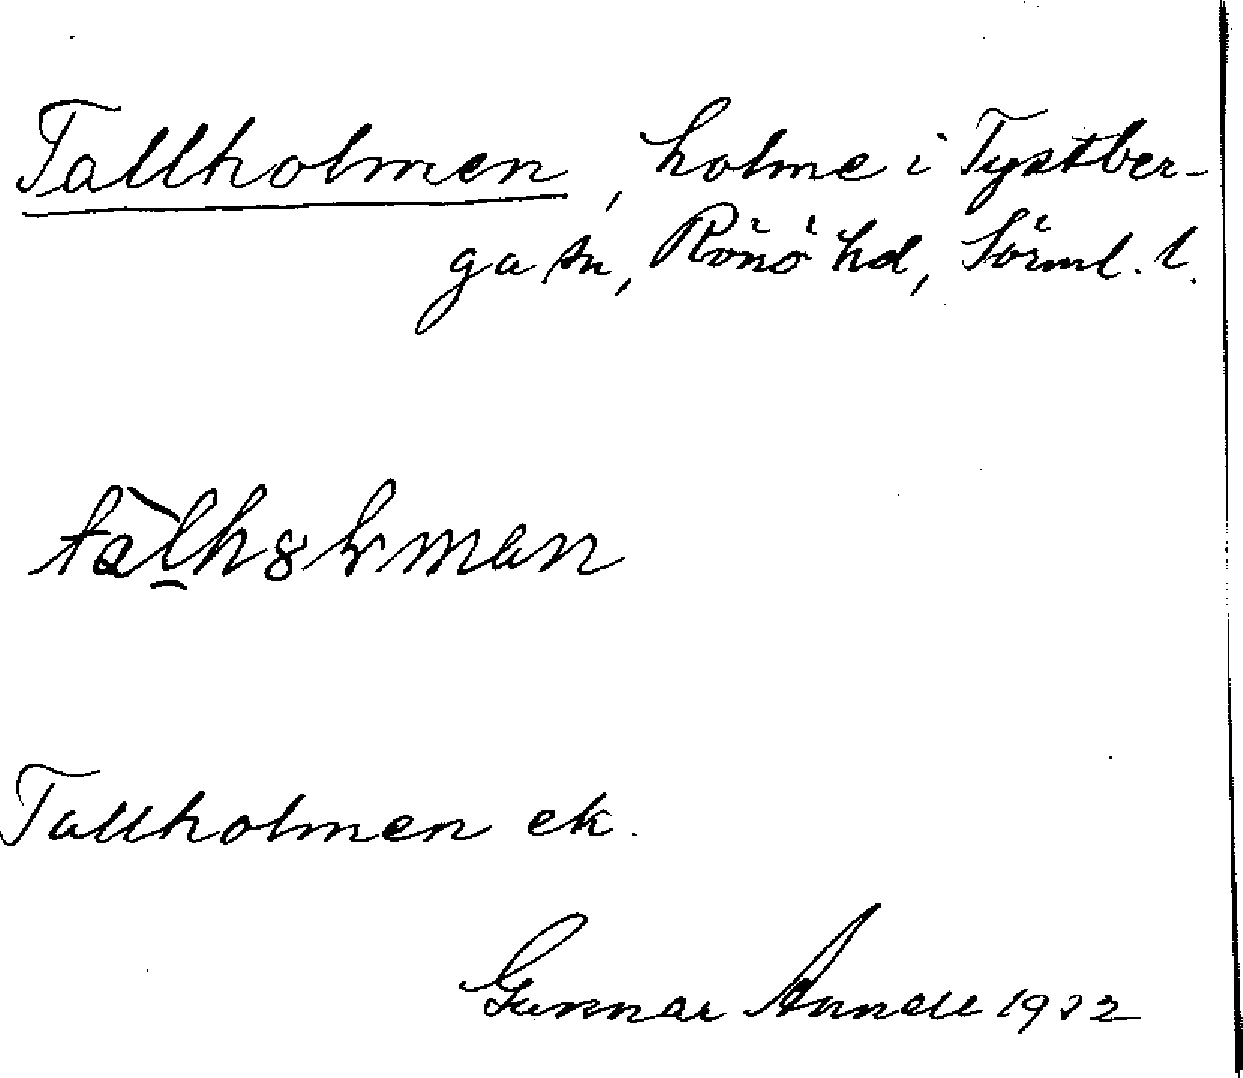 Tallholmen, holme i Tystber-
ga sn, Rönö hd, Sörml. l.
Tallholmen ek.
Gunnar Annell 1932